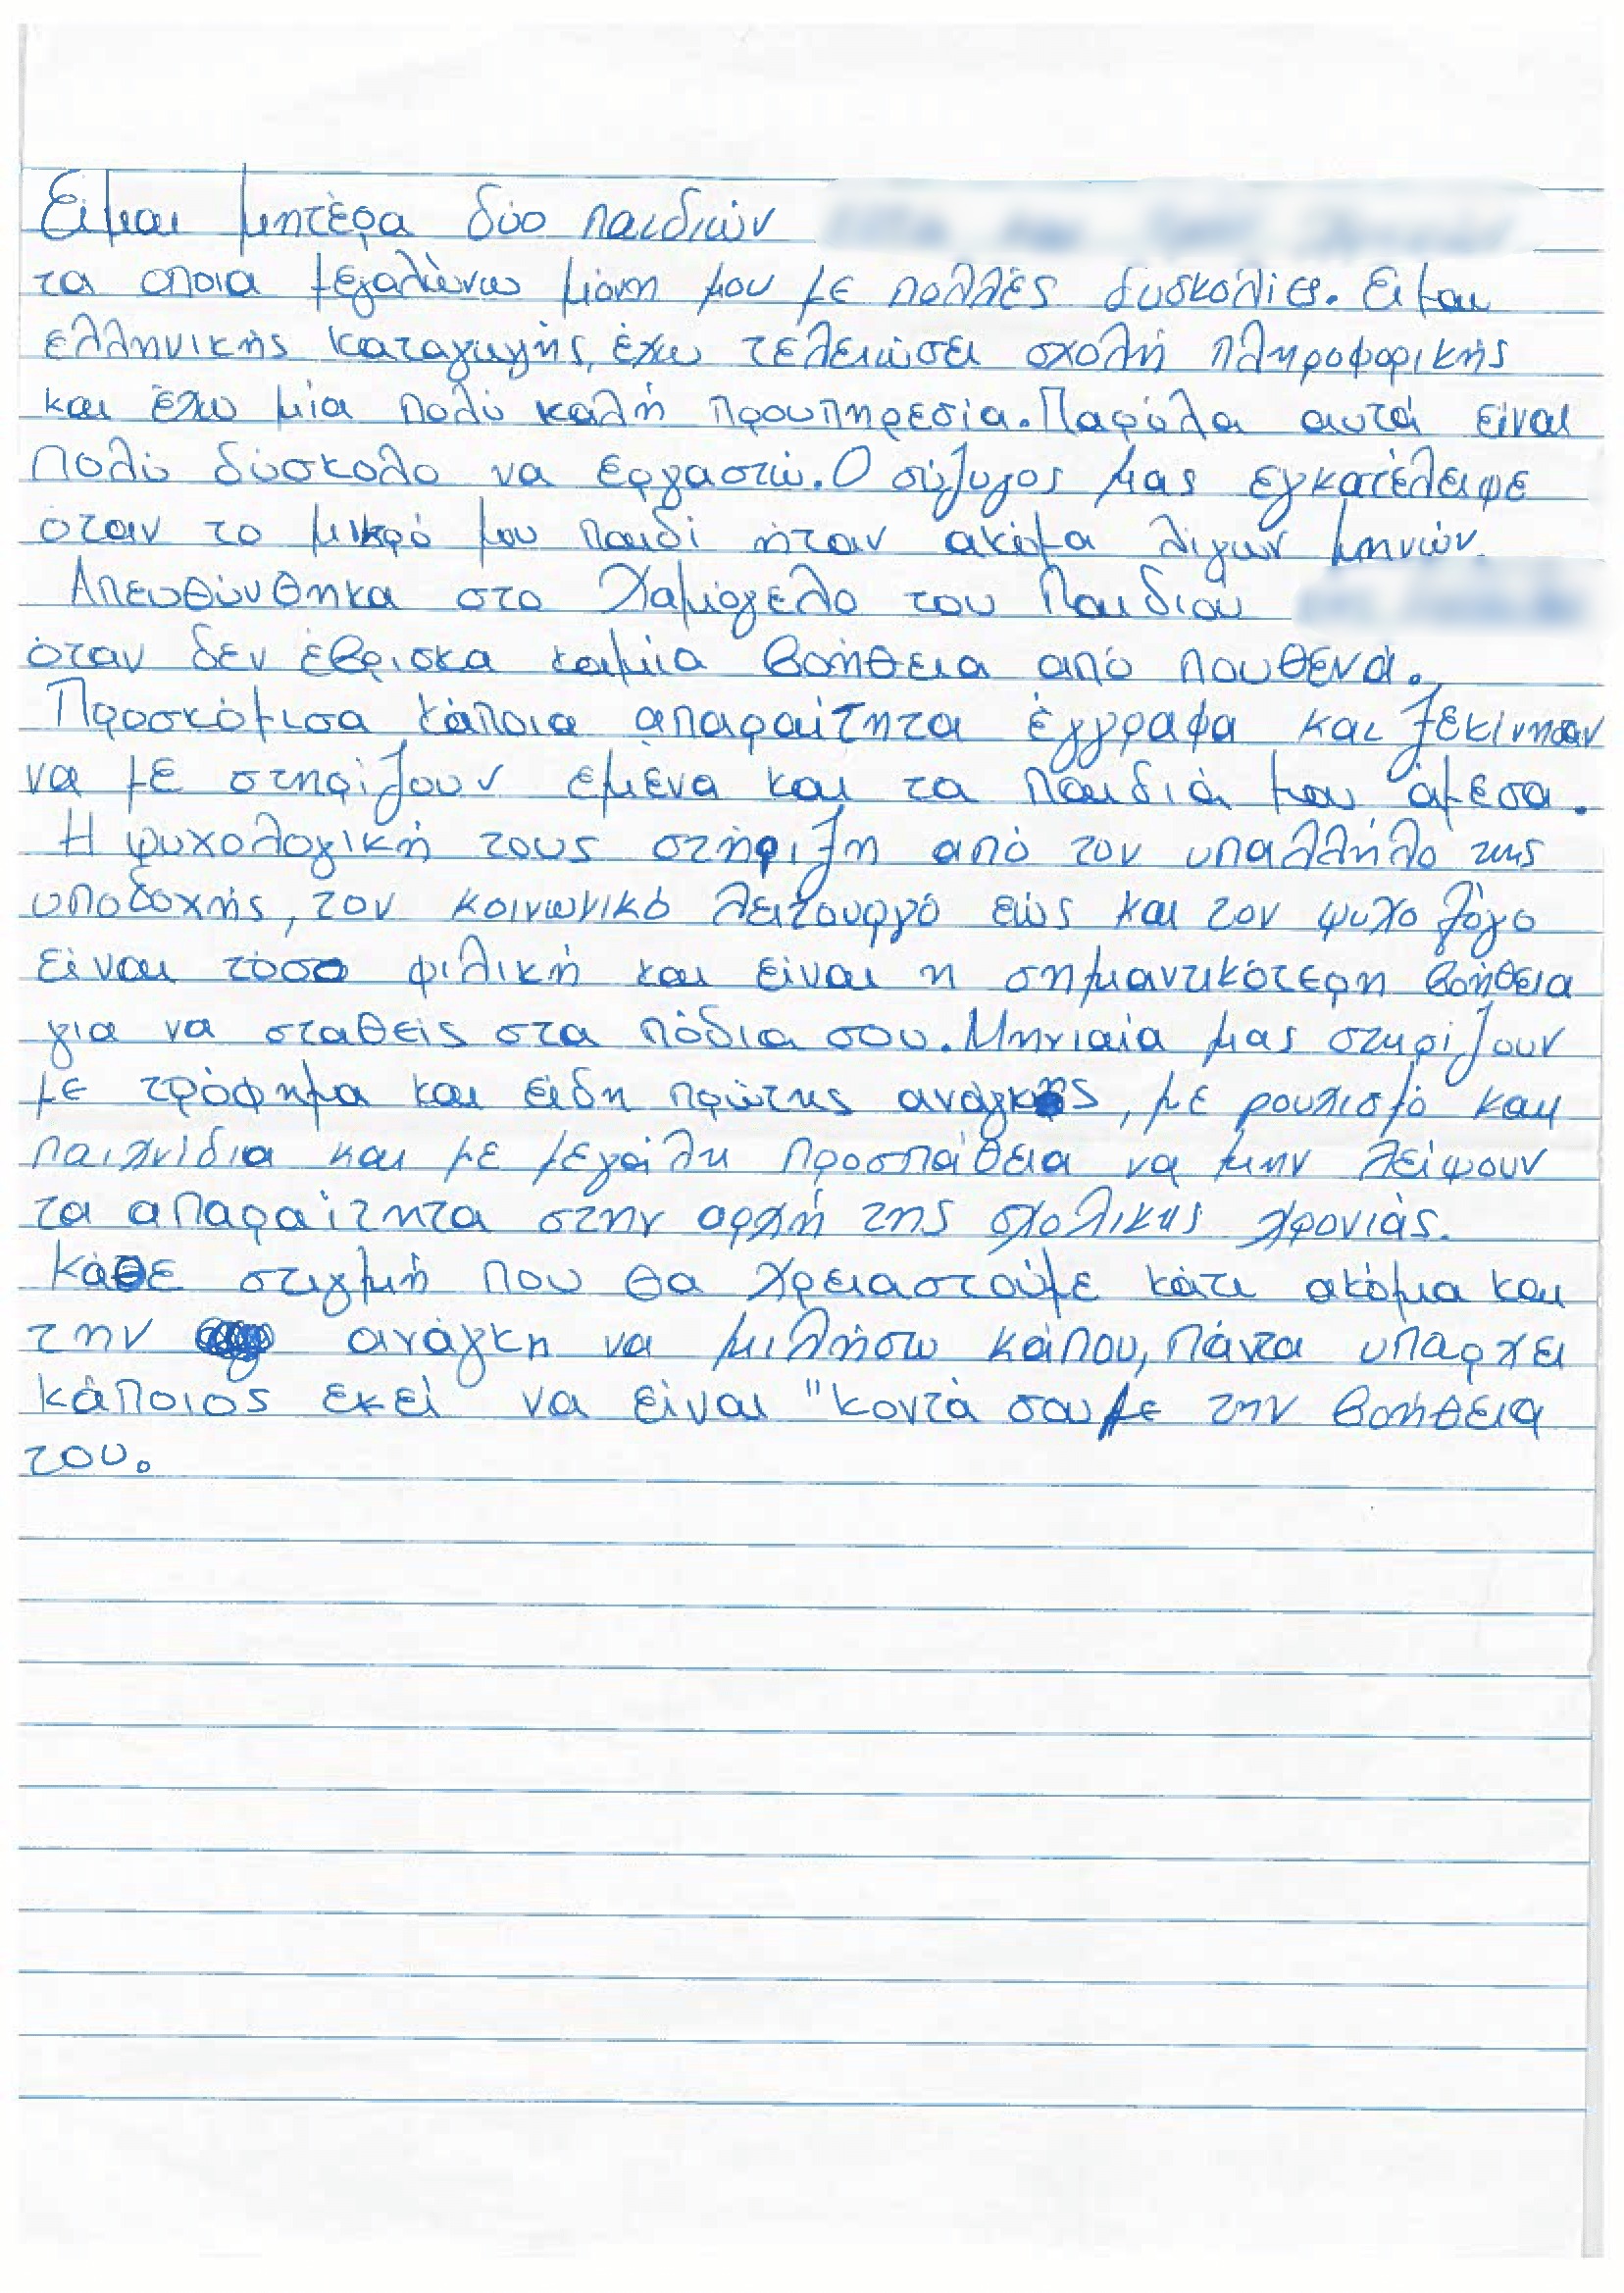 Είμαι μητέρα δύο παιδιών
τα οποια μεγαλώνω μόνη μου με πολλές δυσκολίες. Ειμαι
ελληνικής καταγωγής, έχω τελειώσει σχολή πληροφορικής
και έχω μία πολύ καλή προυπηρεσία. Παρόλα αυτά είναι
πολύ δύσκολο να εργαστώ. Ο σύζυγος μας εγκατέλειψε
όταν το μικρό μου παιδί ήταν ακόμα λίγων μηνών.
Απευθύνθηκα στο Χαμόγελο του Παιδιού
όταν δεν έβρισκα καμία βοήθεια από πουθενά.
Προσκόμισα κάποια απαραίτητα έγγραφα και ξεκίνησαν
να με στηρίζουν εμένα και τα παιδιά μου άμεσα.
Η ψυχολογική τους στήριξη από τον υπαλλήλο της
υποδοχής, τον κοινωνικό λειτουργό εώς και τον ψυχολόγο
είναι τόσο φιλική και είναι η σημαντικότερη βοήθεια
για να σταθείς στα πόδια σου. Μηνιαία μας στηρίζουν
με τρόφημα και είδη πρώτης ανάγκης, με ρουχισμό και
παιχνίδια και με μεγάλη προσπάθεια να μην λείψουν
τα απαραίτητα στην αρχή της σχολικής χρονιάς.
Κάθε στιγμή που θα χρειαστούμε κάτι ακόμα και
την ανάγκη να μιλήσω κάπου, πάντα υπαρχει
κάποιος εκεί να είναι "κοντά σου με την βοήθεια
του.